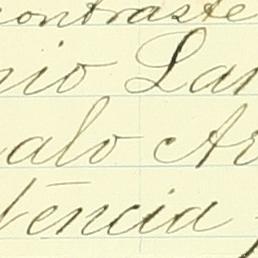 contraste
nio Lar
alo Ar
tência